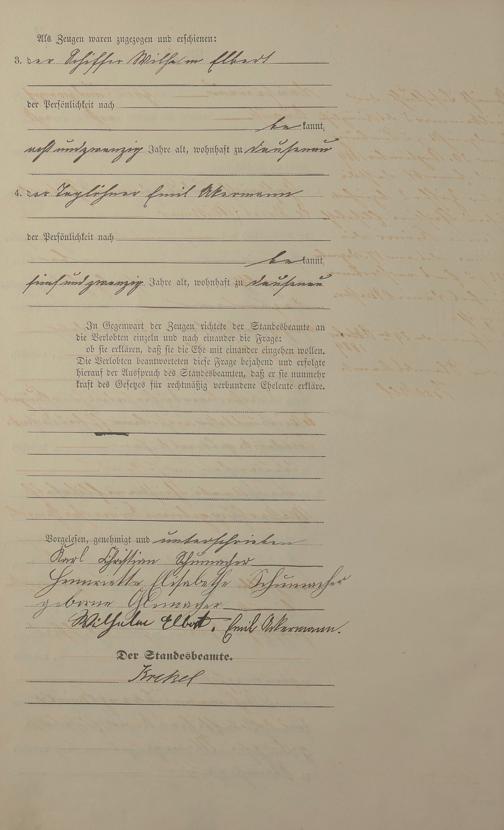 Als Zeugen waren zugezogen und erschienen:
3. der Schiffer Wilhelm Elbert
der Persönlichkeit nach
bekannt,
acht undzwanzig Jahre alt, wohnhaft zu Dausenau
4. der Taglöhner Emil Ackermann
der Persönlichkeit nach
bekannt
fünfundzwanzig Jahre alt, wohnhaft zu Dausenau
In Gegenwart der Zeugen richtete der Standesbeamte an
die Verlobten einzeln und nach einander die Frage:
ob sie erklären, daß sie die Ehe mit einander eingehen wollen.
Die Verlobten beantworteten diese Frage bejahend und erfolgte
hierauf der Ausspruch des Standesbeamten, daß er sie nunmehr
kraft des Gesetzes für rechtmäßig verbundene Eheleute erkläre.
Vorgelesen, genehmigt und unterschrieben
Karl Christian Schumacher
Henriette Elisabethe Schumacher
geborne
Wilhelm Elbert. Emil Ackermann.
Der Standesbeamte.
Krekel